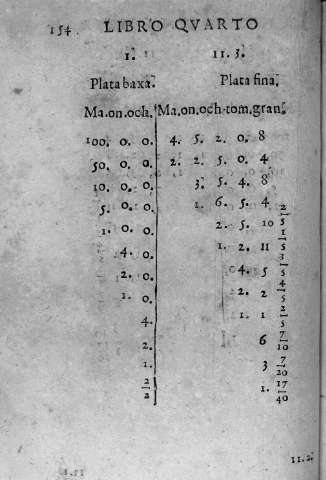 154 LIBRO QVARTO
1. 11. 3.
Plata baxa. Plata fina.
Ma. on. och. Ma. on. och. tom. gran.
100. 0. 0. 4. 5. 2. 0. 8
50. 0. 0. 2. 2. 5. 0. 4
10. 0. 0. 3. 5. 4. 8
5. 0. 0. 1. 6. 5. 4
1. 0. 0. 2. 5. 10 2/5
4. 0. 1. 2. 11 1/5
2. 0. 4. 5 3/5
1. 0. 2. 2 4/5
4. 1. 1 2/5
2. 6 7/10
1. 3 7/20
2/2 1. 17/40
11. 2.